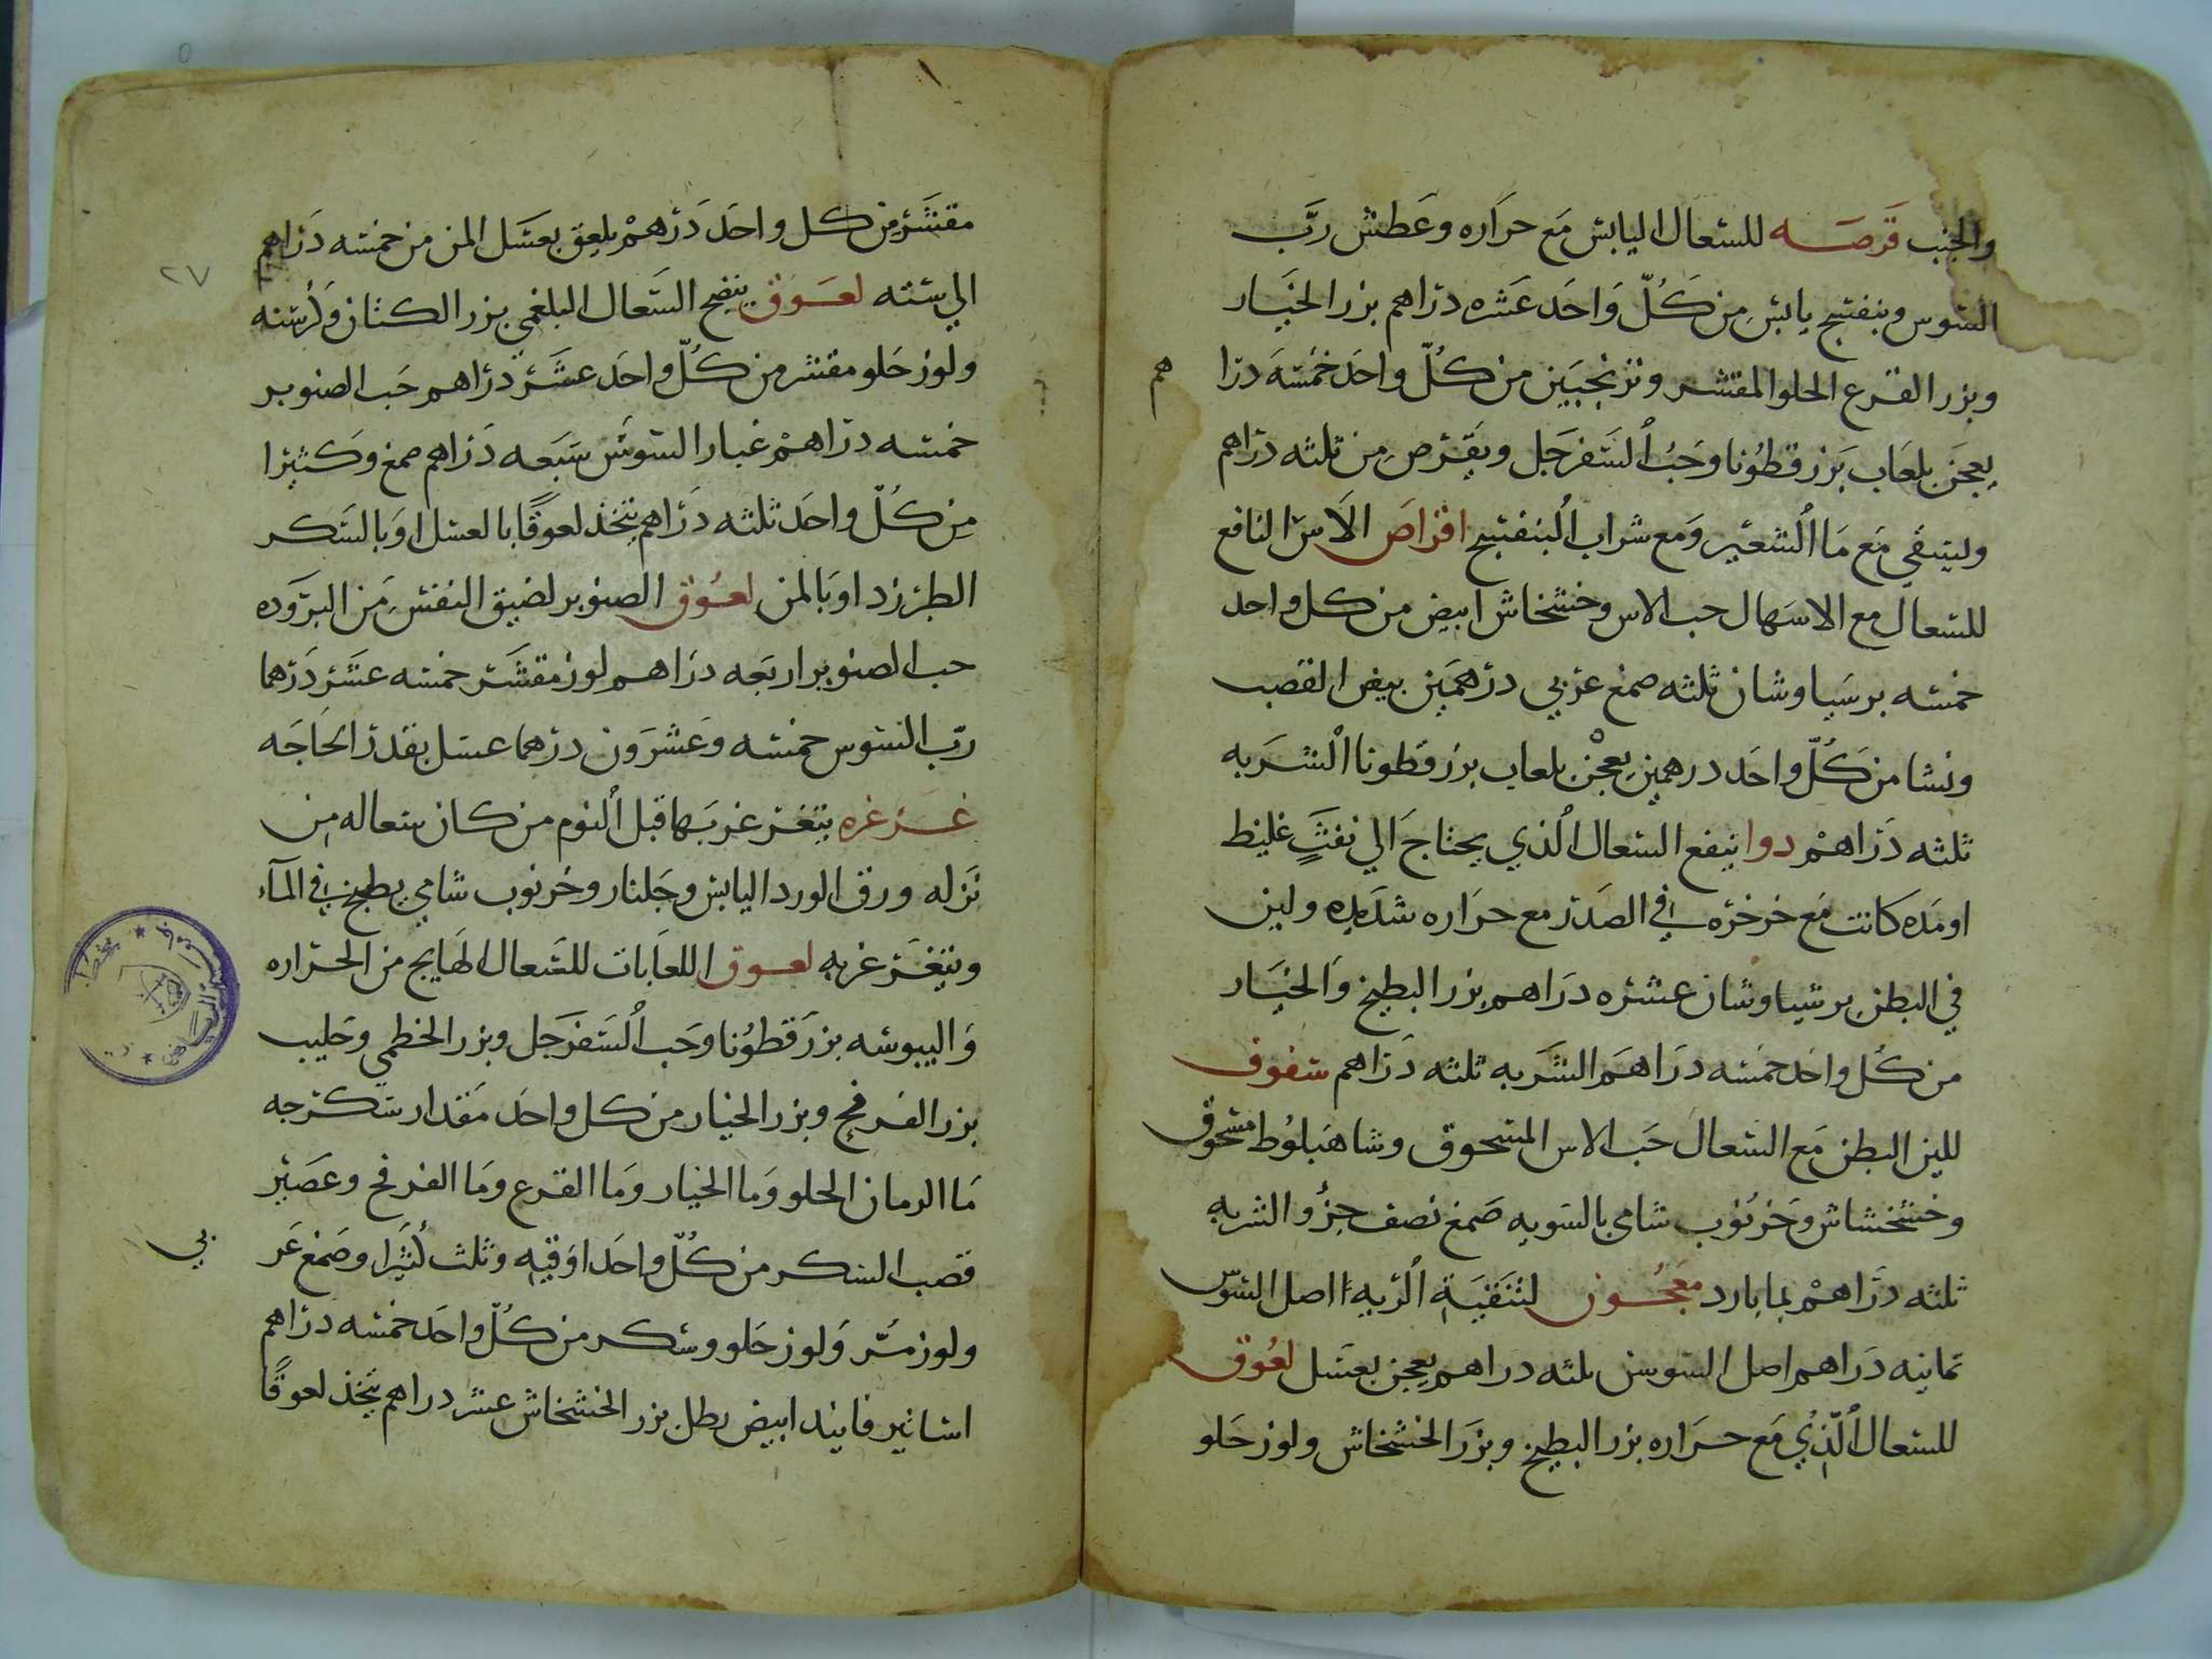 والجنب قرصه للسعال اليابس مع حراره وعطش ربّ
السوس وبنفسج يابس من كلّ واحد عشره دراهم بزر الخيار
وبزر القرع الحلو المقشر وترنجبين من كلّ واحد خمسه درا هم
يعجن بلعاب بزر قطونا وحبّ السفرجل ويقرص من ثلثه دراهم
ويسقي مع ما الشعير ومع شراب البنفسج اقراص الاس النافع
للسعال مع الاسهال حب الاس وخشخاش ابيض من كل واحد
خمسه برسياوشان ثلثه صمغ عربي درهمين بيض القصب
ونشا من كلّ واحد درهمين يعجن بلعاب بزر قطونا الشربه
ثلثه دراهم دوا ينفع السعال الذي يحتاج الي نفث غليظ
او مده كانت مع خرخره في الصدر مع حراره شديده ولين
في البطن برسياوشان عشره دراهم بزر البطيخ والخيار
من كل واحد خمسه دراهم الشربه ثلثه دراهم سفوف
للين البطن مع السعال حب الاس المسحوق وشاهبلوط مسحوق
وخشخشاش وخرنوب شامي بالسويه صمغ نصف جزؤ الشربه
ثلثه دراهم بما بارد معجون لتنقية الريه اصل السوس
ثمانيه دراهم اصل السوسن ثلثه دراهم يعجن بعسل لعوق
للسعال الّذي مع حراره بزر البطيخ وبزر الخشخاش ولوز حلو
٢٧
مقشر من كل واحد درهم يلعق بعسل المن من خمسه دراهم
الي سته لعوق ينضج السعال البلغمي بزر الكتان وكرسنه
ولوز حلو مقشر من كلّ واحد عشر دراهم حب الصنوبر
خمسه دراهم غبار السوس سبعه دراهم صمغ وكثيرا
من كلّ واحد ثلثه دراهم يتخذ لعوقًا بالعسل او بالسكر
الطبرزد او بالمن لعوق الصنوبر لضيق النفس من البروده
حب الصنوبر اربعه دراهم لوز مقشر خمسه عشر درهما
ربّ السوس خمسه وعشرون درهما عسل بقدر الحاجه
غرغره يتغرغر بها قبل النوم من كان سعاله من
نزله ورق الورد اليابس وجلنار وخرنوب شامي يطبخ في المآء
ويتغرغر به لعوق اللعابات للسعال الهايج من الحراره
واليبوسه بزر قطونا وحب السفرجل وبزر الخطمي وحليب
بزر الفرفح وبزر الخيار من كل واحد مقدار سكرجه
ما الرمان الحلو وما الخيار وما القرع وما الفرفح وعصير
قصب السكر من كلّ واحد اوقيه وثلث كثيرا وصمغ عر بي
ولوز مرّ ولوز حلو وسكر من كلّ واحد خمسه دراهم
اساتير فانيد ابيض رطل بزر الخشخاش عشر دراهم يتخذ لعوقًا